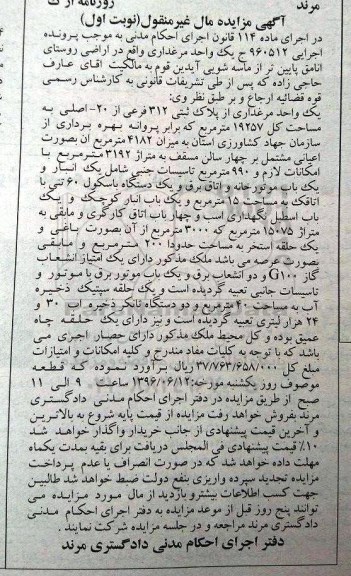 مرند
روزنامه ارک
آگهی مزایده مال غیرمنقول(نوبت اول)
در اجرای ماده ۱۱۴ قانون اجرای احکام مدنی به موجب پرونده
اجرایی ۹۶۰۵۱۲ ج یک واحد مرغداری واقع در اراضی روستای
انامق پایین تر از ماسه شویی آیدین قوم به مالکیت آقای عارف
حاجی زاده که پس از طی تشریفات قانونی به کارشناس رسمی
قوه قضائیه ارجاع و بر طبق نظر وی:
یک واحد مرغداری از پلاک ثبتی ۳۱۲ فرعی از ۲۰-اصلی به
مساحت کل ۱۹۲۵۷ مترمربع که برابر پروانه بهره برداری از
سازمان جهاد کشاورزی استان به میزان ۴۱۸۲ مترمربع آن بصورت
اعیانی مشتمل بر چهار سالن مسقف به متراژ ۳۱۹۲ مترمربع با
امکانات لازم و ۹۹۰ مترمربع تاسیسات جنبی شامل یک انبار و
یک باب موتورخانه و اتاق برق و یک دستگاه باسکول ۶۰ تنی با
اتاقک به مساحت ۱۵ مترمربع و یک باب انبار کوچک و یک
باب اسطبل نگهداری اسب و چهار باب اتاق کارگری و مابقی به
متراژ ۱۵۰۷۵ مترمربع که ۳۰۰۰ مترمربع از آن بصورت باغی و
یک حلقه استخر به مساحت حدودا ۲۰۰ مترمربع و مابقی
بصورت عرصه می باشد ملک مذکور دارای یک امتیاز انشعاب
گاز G۱۰۰ و دو انشعاب برق و یک باب موتور برق با موتور و
تاسیسات جانبی تعبیه گردیده است و یک حلقه سپتیک ذخیره
آب به مساحت ۴۰ مترمربع و دو دستگاه تانکر ذخیره آب ۳۰ و
۲۴ هزار لیتری تعبیه گردیده است و نیز دارای یک حلقه چاه
عمیق بوده و کل محیط ملک مذکور دارای حصار آجری می
باشد که با توجه به کلیات مفاد مندرج و کلیه امکانات و امتیازات
مبلغ کل ۳۷/۷۶۳/۶۵۸/۰۰۰ ریال برآورد نموده که قطعه
موصوف روز یکشنبه مورخه:۱۳۹۶/۰۶/۱۲ ساعت ۹ الی ۱۱
صبح از طریق مزایده در دفتر اجرای احکام مدنی دادگستری
مرند بفروش خواهد رفت مزایده از قیمت پایه شروع به بالاترین
و آخرین قیمت پیشنهادی از جانب خریدار واگذار خواهد شد
۱۰٪ قیمت پیشنهادی فی المجلس دریافت برای بقیه بمدت یکماه
مهلت داده خواهد شد که در صورت انصراف یا عدم پرداخت
مزایده تجدید سپرده واریزی بنفع دولت ضبط خواهد شد طالبین
جهت کسب اطلاعات بیشتر و بازدید از مال مورد مزایده می
توانند پنج روز قبل از موعد مزایده به دفتر اجرای احکام مدنی
دادگستری مرند مراجعه و در جلسه مزایده شرکت نمایند.
دفتر اجرای احکام مدنی دادگستری مرند